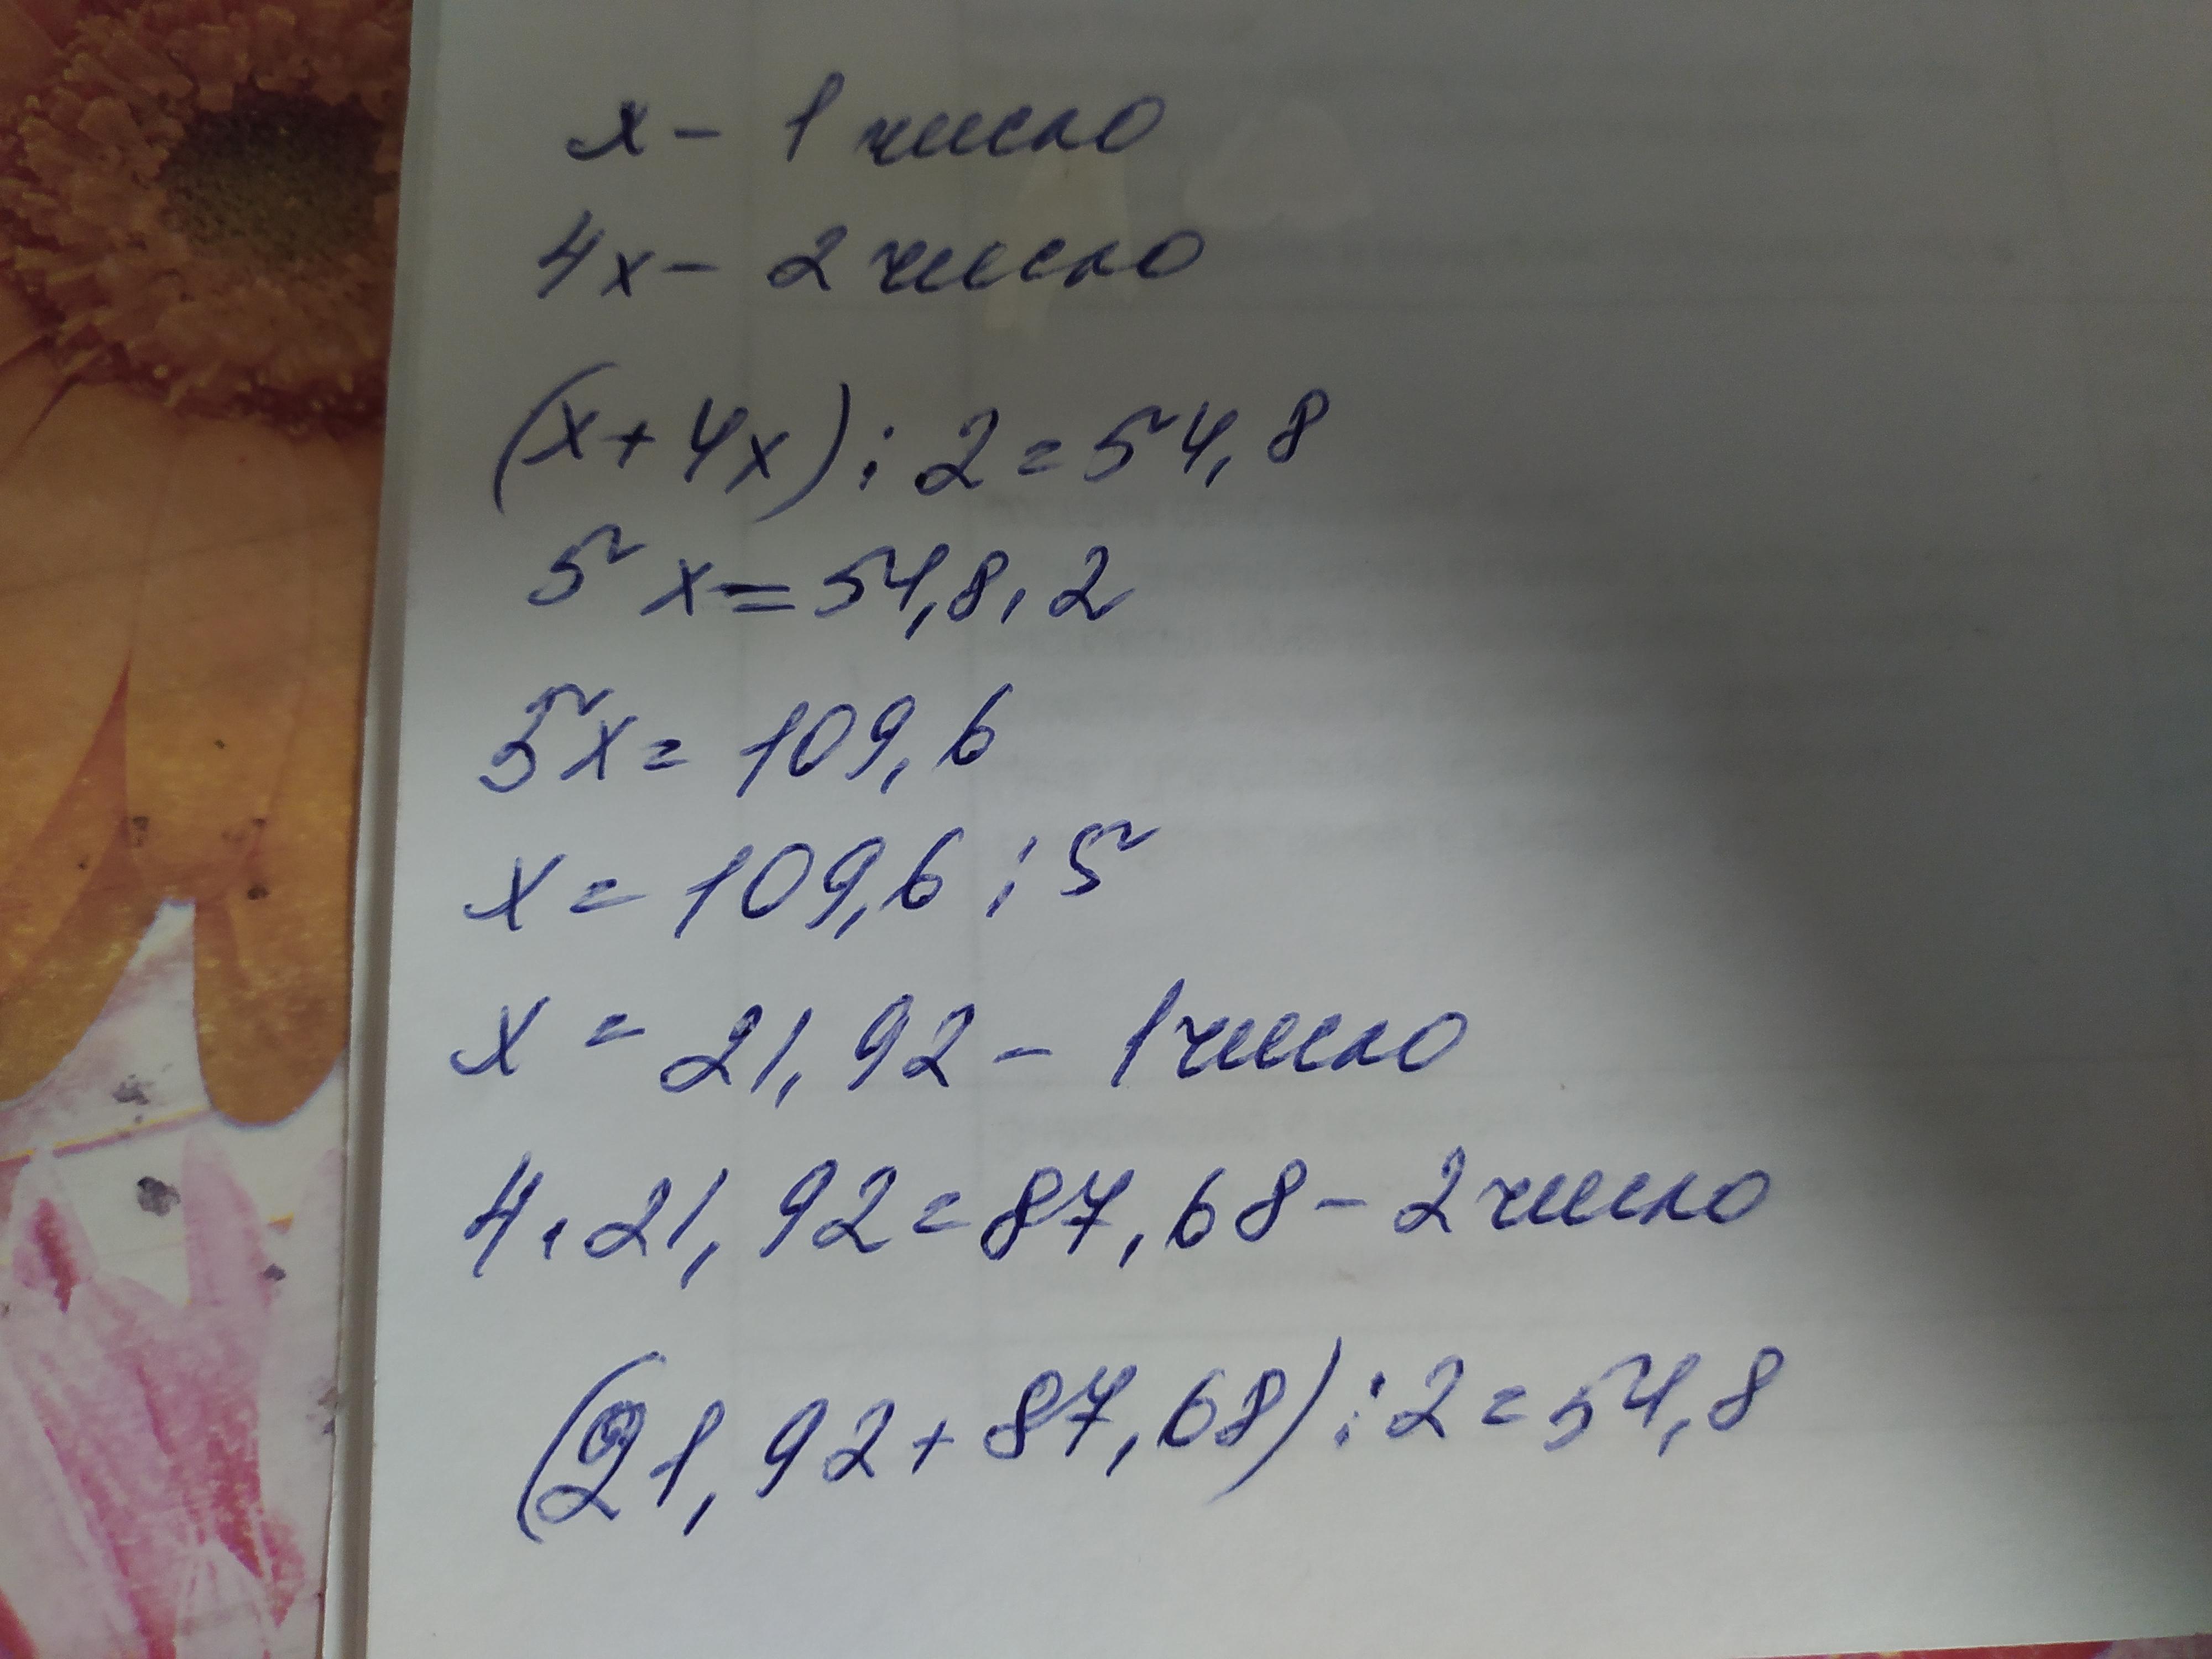 x - 1 число
4x - 2 число
(x + 4x) : 2 = 54,8
5x = 54,8 · 2
5x = 109,6
x = 109,6 : 5
x = 21,92 - 1 число
4 · 21,92 = 87,68 - 2 число
(21,92 + 87,68) : 2 = 54,8